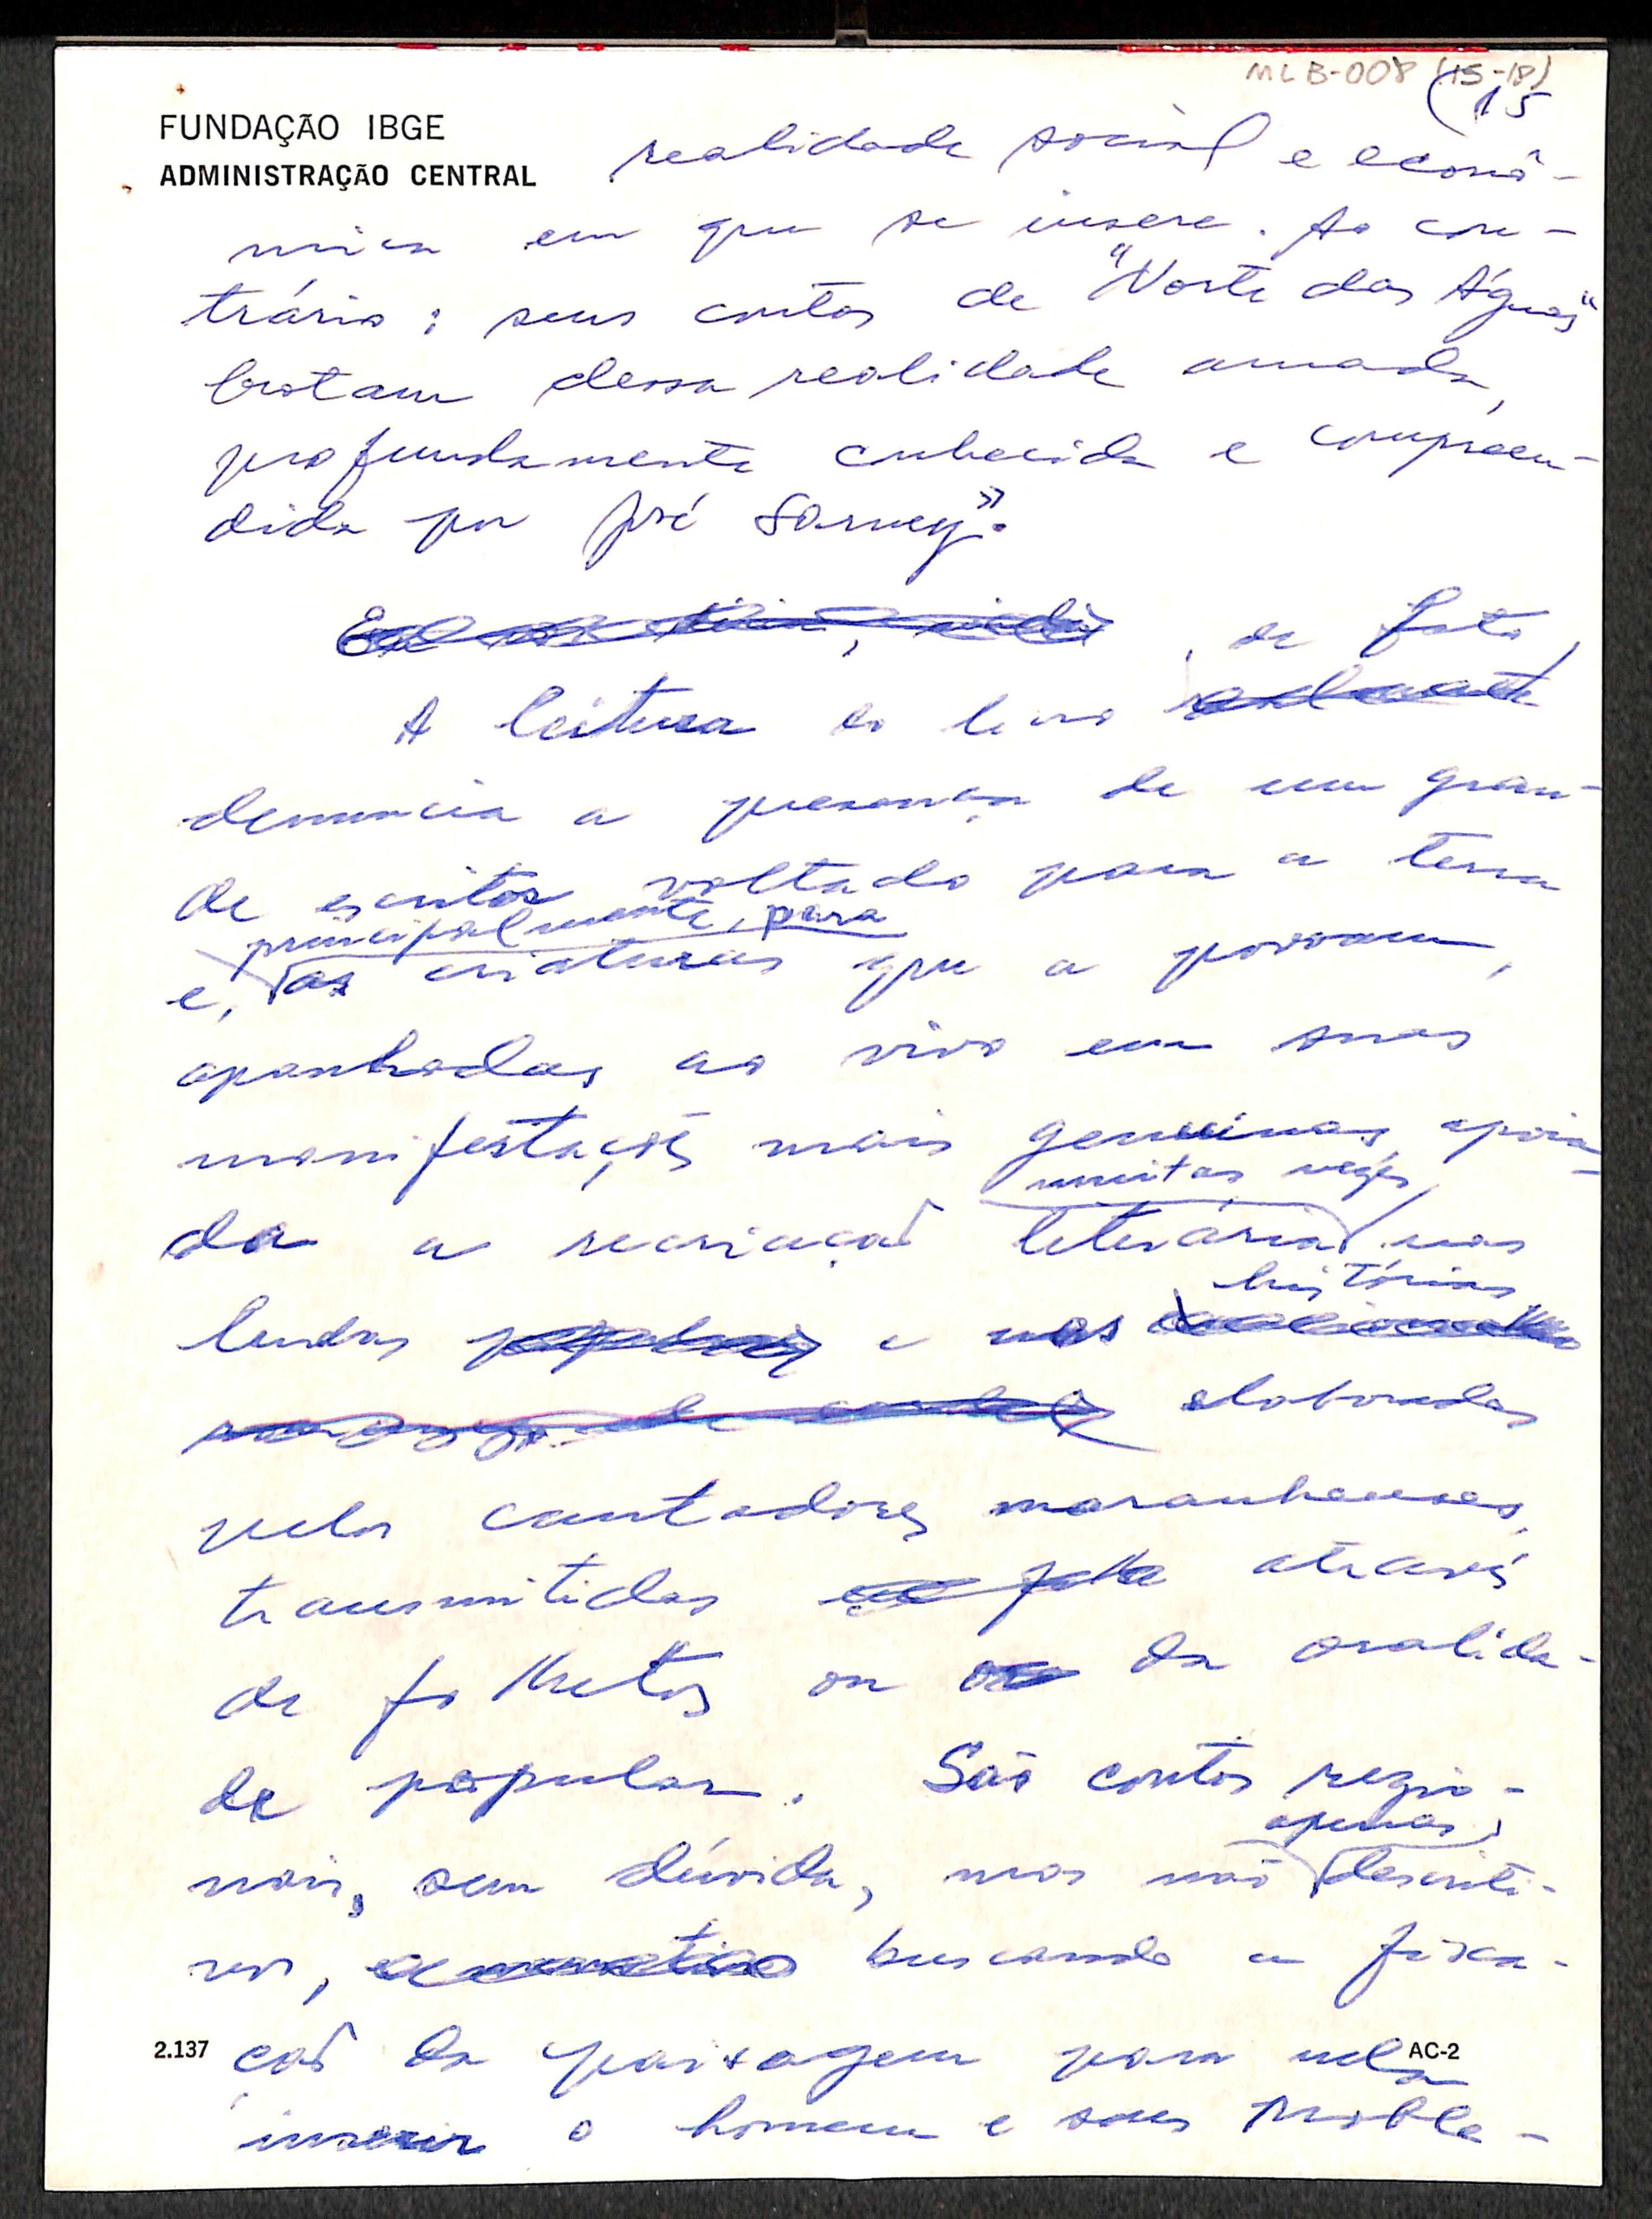 MLB-008 (15-18)
15
FUNDAÇÃO IBGE
ADMINISTRAÇÃO CENTRAL
realidade social e econô-
mica em que se insere. Ao con-
trário: seus contos de "Norte das Águas"
brotam dessa realidade amada,
profundamente conhecida e compreen-
dida por José Sarney".
, de fato,
A leitura do livro
denuncia a presença de um gran-
de escritor voltado para a terra
principalmente, para
e, as criaturas que a povoam,
apanhadas ao vivo em suas
manifestações mais genuinas, apoia-
muitas vezes,
da a recriação literária nas
histórias
lendas e nas
elaboradas
pelos cantadores maranhenses,
transmitidas através
de folhetos ou da oralida-
de popular. São contos regio-
apenas,
nais, sem dúvida, mas não descriti-
vos, buscando a fixa-
ção da paisagem para nela
inserir o homem e seus proble-
2.137
AC-2